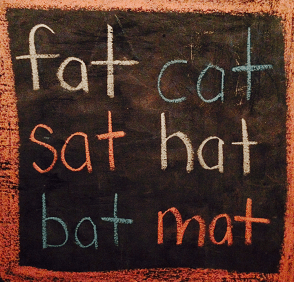 fat cat
sat hat
bat mat